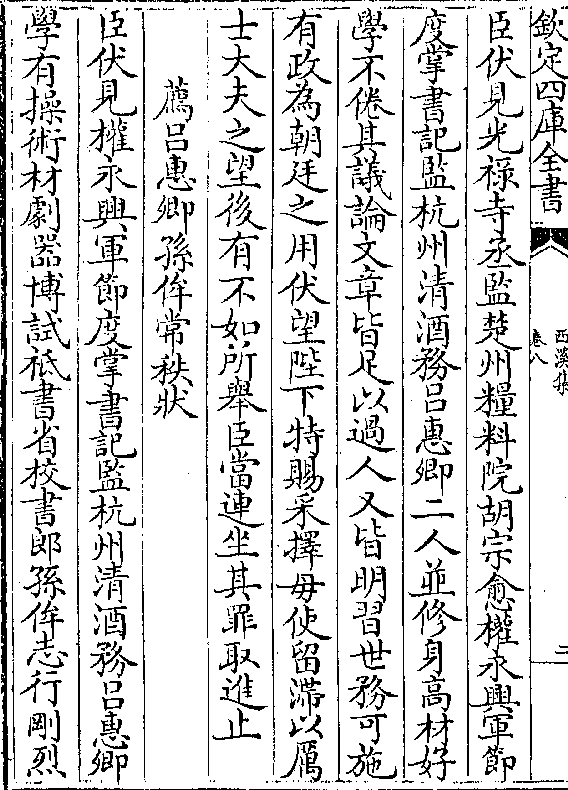 欽定四庫全書
西溪集
卷八
二
臣伏見光禄寺丞監楚州糧料院胡宗愈權永興軍節
度掌書記監杭州清酒務吕惠卿二人並修身高材好
學不倦其議論文章皆足以過人又皆明習世務可施
有政為朝廷之用伏望陛下特賜采擇毋使留滯以厲
士大夫之望後有不如所舉臣當連坐其罪取進止
薦吕惠卿孫侔常秩狀
臣伏見權永興軍節度掌書記監杭州清酒務吕惠卿
學有操術材劇器博試祗書省校書郎孫侔志行剛烈